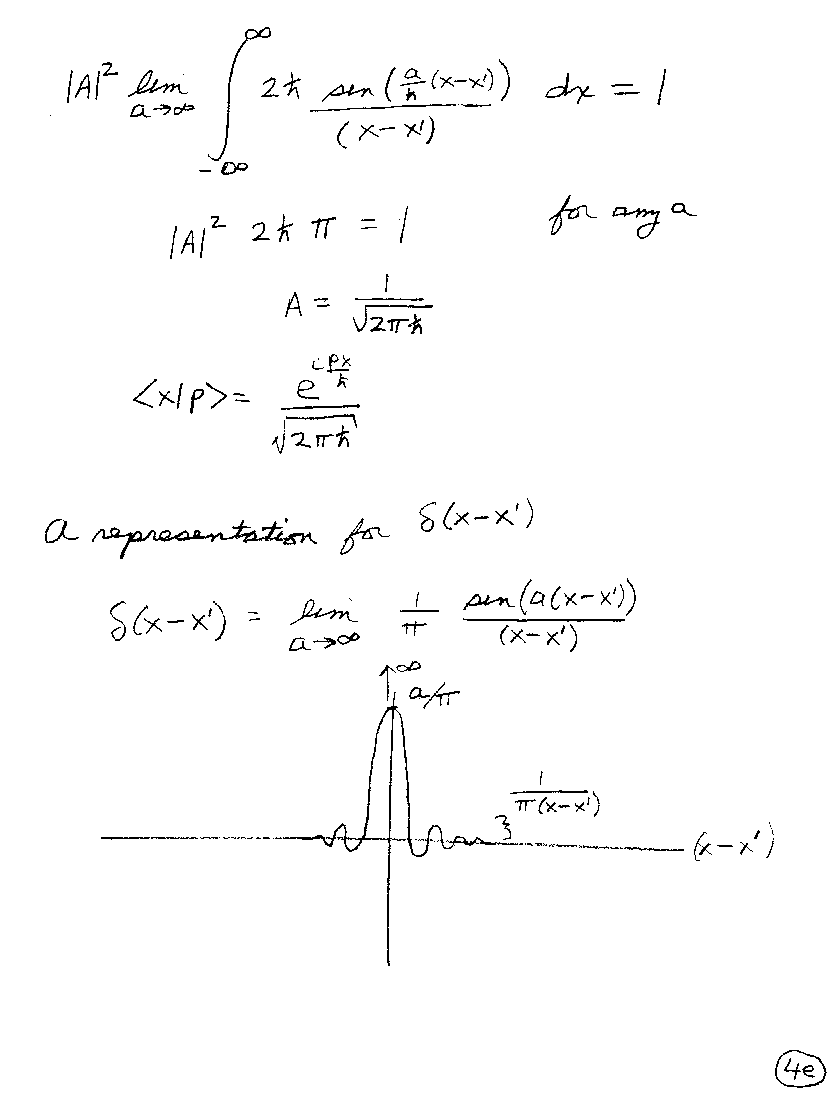 |A|² lim a→∞ ∫_{-∞}^{∞} 2ħ sin(a/ħ (x-x'))/(x-x') dx = 1
|A|² 2ħ π = 1 for any a
A = 1/√(2πħ)
<x|p> = e^{ipx/ħ}/√(2πħ)
A representation for δ(x-x')
δ(x-x') = lim a→∞ 1/π sin(a(x-x'))/(x-x')
∞
a/π
1/(π(x-x'))
(x-x')
4e